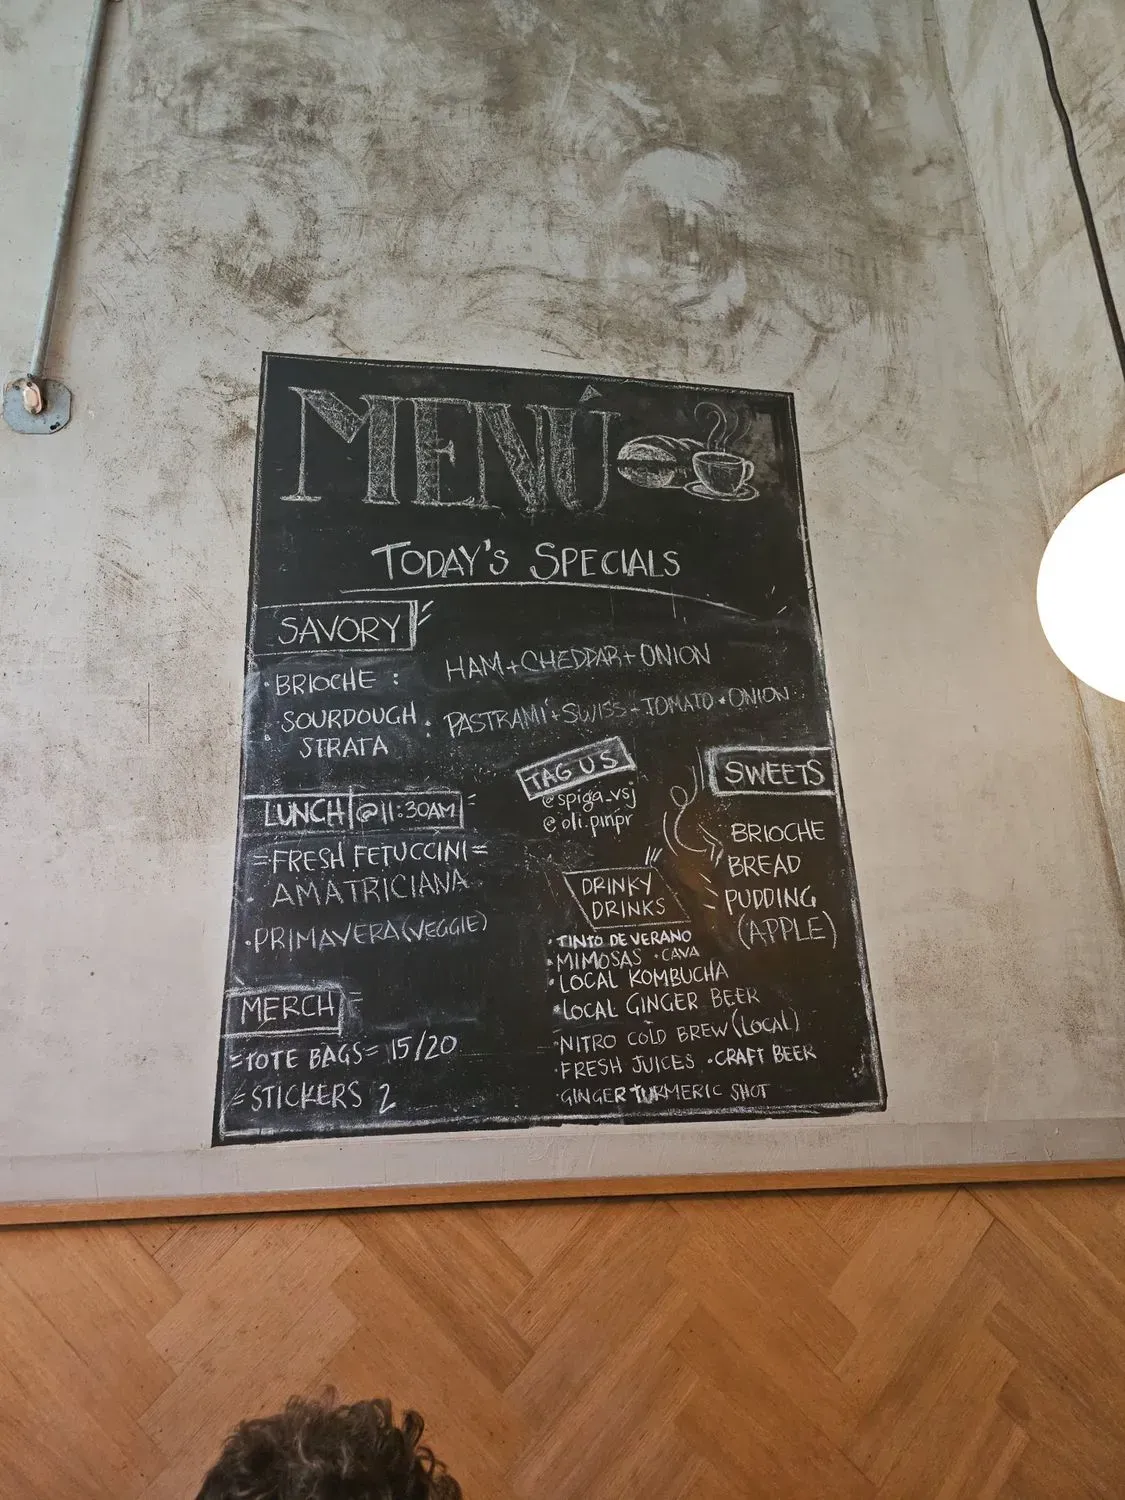 MENÚ
TODAY'S SPECIALS
SAVORY
· BRIOCHE : HAM + CHEDDAR + ONION
· SOURDOUGH STRATA : PASTRAMI + SWISS + TOMATO + ONION
LUNCH | @ 11:30AM
= FRESH FETUCCINI =
· AMATRICIANA
· PRIMAVERA (VEGGIE)
MERCH
= TOTE BAGS = 15/20
= STICKERS 2
TAG US
@spiga_vsj
@oli.pinpr
SWEETS
BRIOCHE
BREAD
PUDDING
(APPLE)
DRINKY
DRINKS
· TINTO DE VERANO
· MIMOSAS · CAVA
· LOCAL KOMBUCHA
· LOCAL GINGER BEER
· NITRO COLD BREW (LOCAL)
· FRESH JUICES · CRAFT BEER
· GINGER TURMERIC SHOT